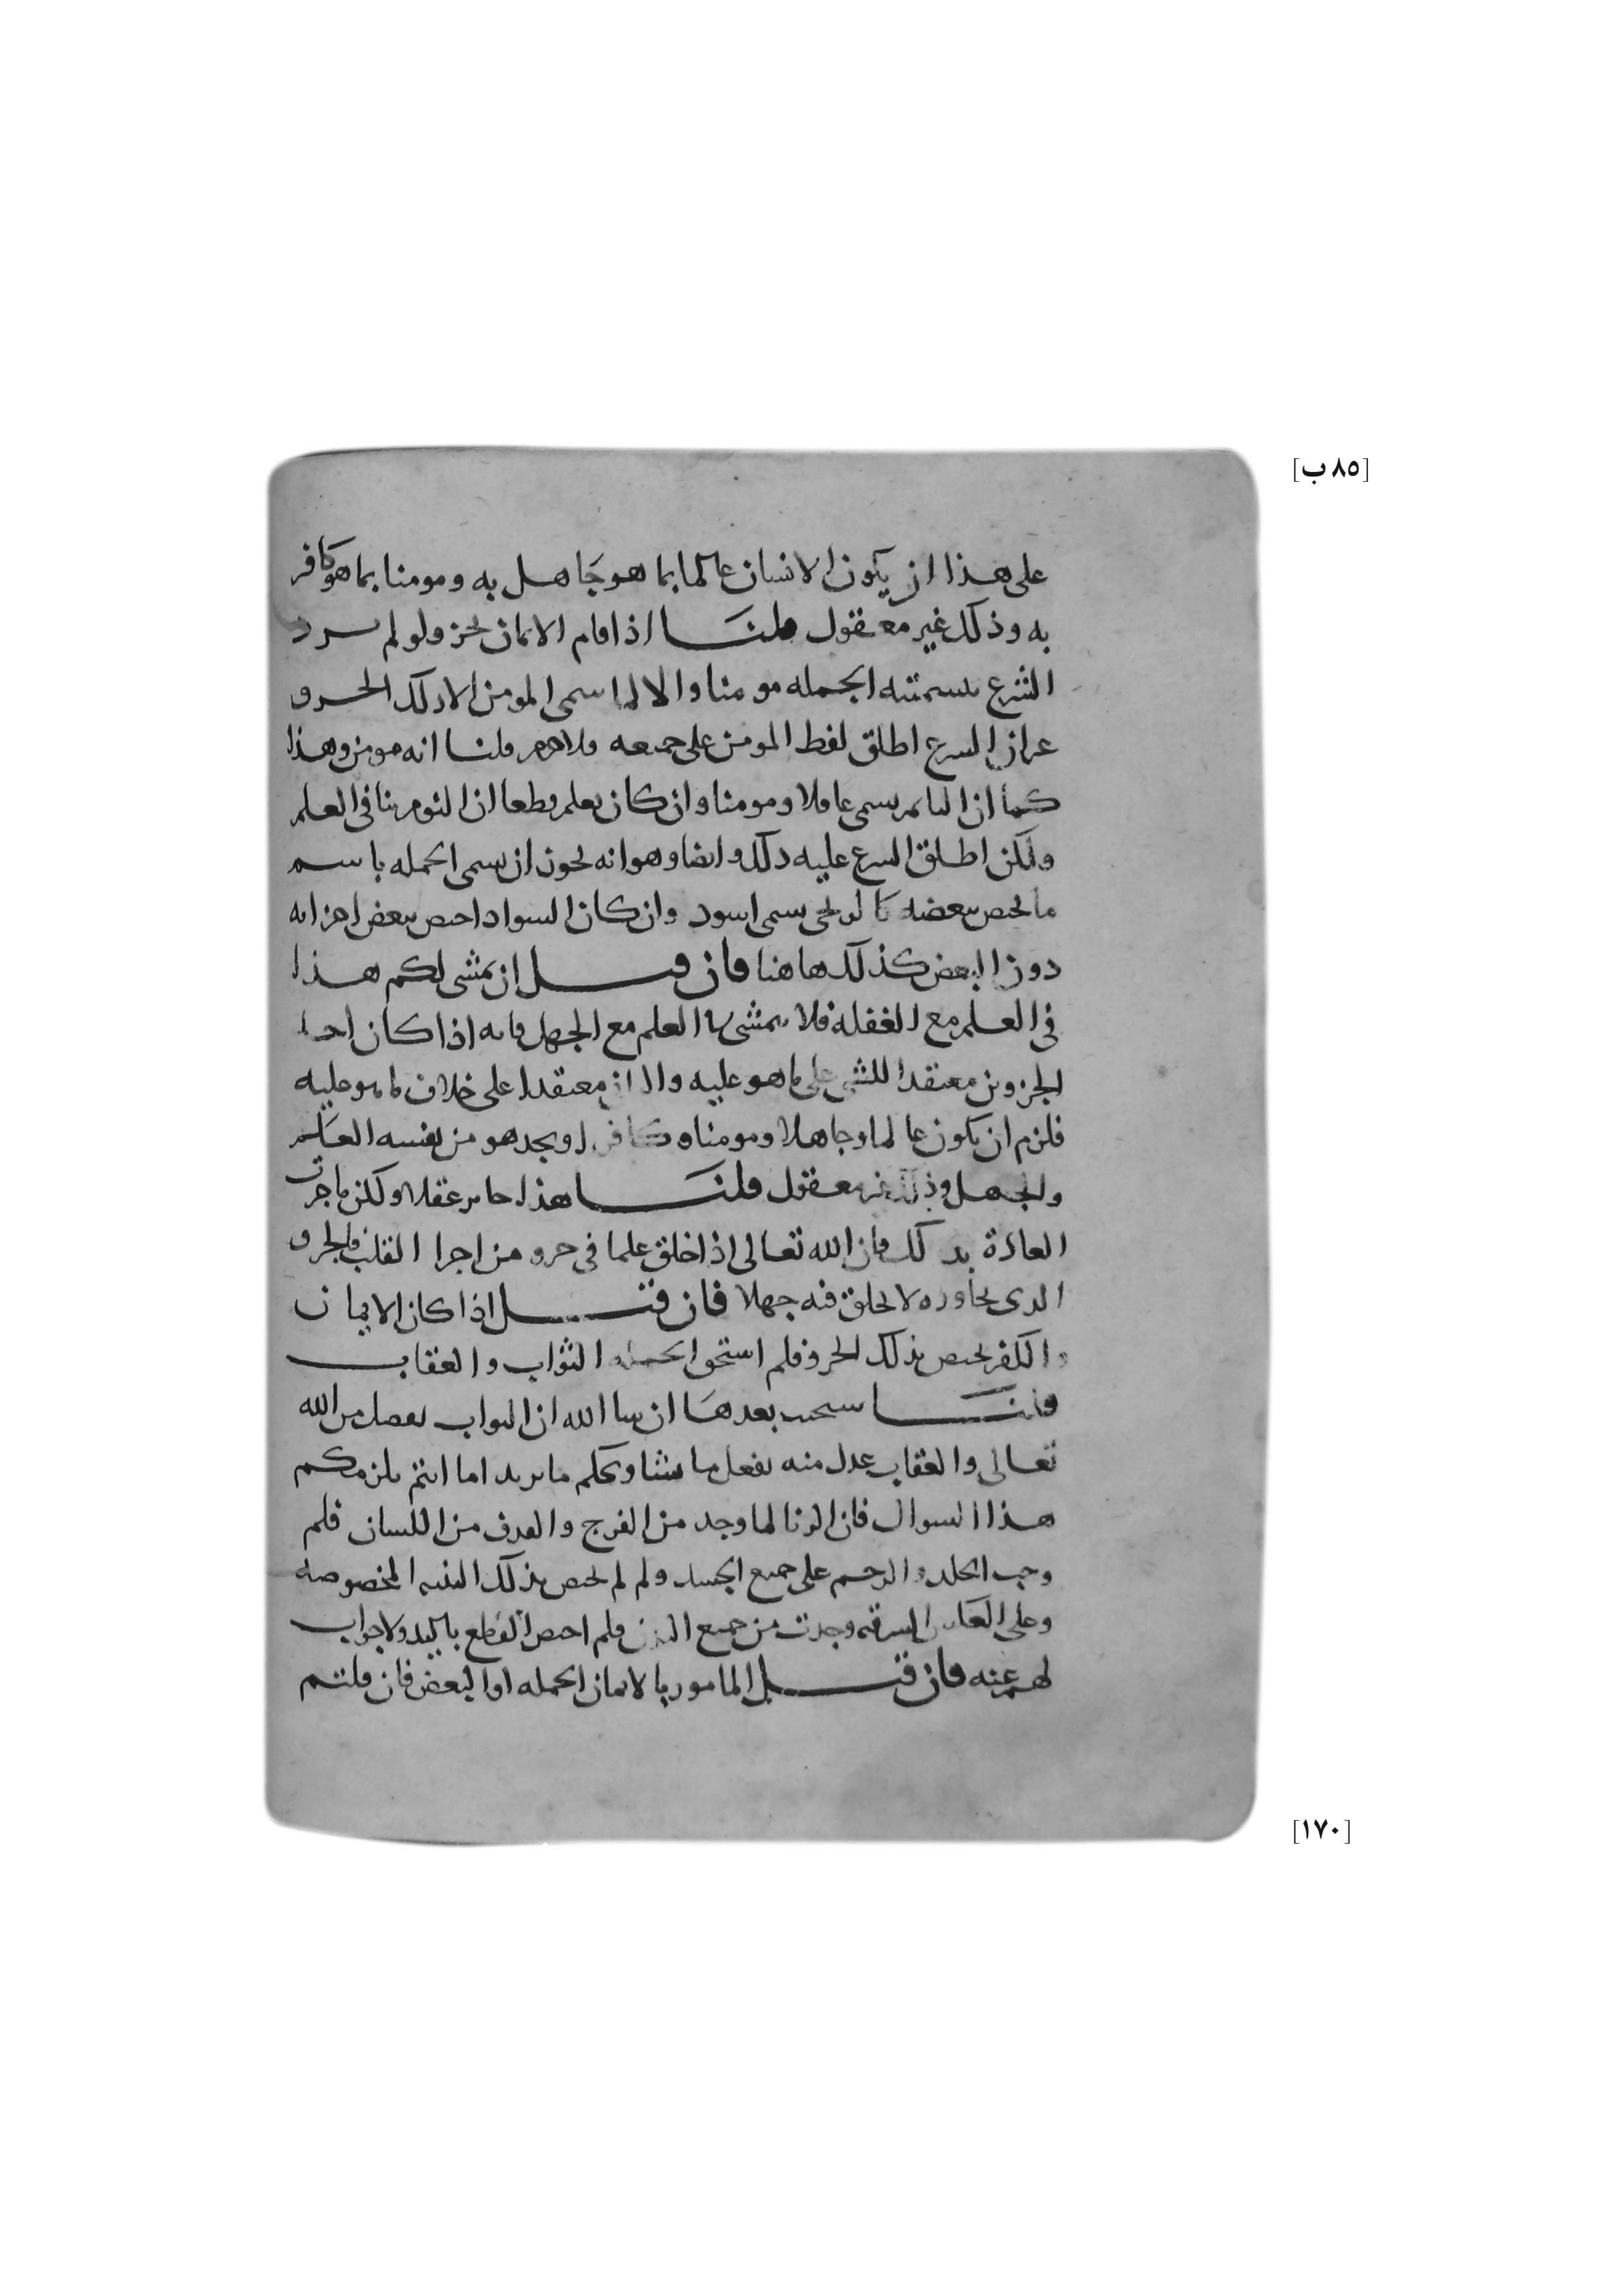 [٨٥ ب]
على هذا ان يكون الانسان عالما بما هو جاهل به ومومنا بما هو كافر
به وذلك غير معقول قلنا اذا قام الايمان بجز ولو لم يرد
الشرع بتسمتنه الجمله مومنا والا لما سمى المومن الا ذلك الجزو
غير ان الشرع اطلق لفظ المومن على جميعه فلا جرم قلنا انه مومن وهذا
كما ان النايم يسمى عاقلا ومومنا وان كان يعلم قطعا ان النوم ينافى العلم
ولكن اطلق الشرع عليه ذلك وايضا وهو انه يجوز ان يسمى الجمله باسم
ما يختص ببعضه كالزنجى يسمى اسود وان كان السواد اختص ببعض اجزايه
دون البعض كذلك هاهنا فان قيل ان يمشى لكم هذا
فى العلم مع الغفلة فلا يمشى العلم مع الجهل فانه اذا كان احد
الجزوين معتقدا للشى على ما هو عليه والا معتقدا على خلاف ما هو عليه
فلزم ان يكون عالما وجاهلا ومومنا وكافرا ويجد هو من نفسه العلم
والجهل وذلك غير معقول قلنا هذا جايز عقلا ولكن ما جرت
العادة بذلك فان الله تعالى اذا خلق علما فى جزو من اجزا القلب فالجزو
الذى يجاوره لا يخلق فيه جهلا فان قيل اذا كان الايمان
والكفر يختص بذلك الجزو فلم استحق الجمله الثواب والعقاب
قلنا سنجيب بعدها ان شا الله ان الثواب تفضل من الله
تعالى والعقاب عدل منه يفعل ما يشا ويحكم ما يريد اما انتم يلزمكم
هذا السوال فان الزنا لما وجد من الفرج والقذف من اللسان فلم
وجب الجلد والرجم على جميع الجسد ولم لم يختص بذلك البنيه المخصوصه
وعلى العكس السرقه وجدت من جميع البدن فلم اختص القطع باليد ولا جواب
لهم عنه فان قيل المامور بالايمان الجمله او البعض فان قلتم
[١٧٠]